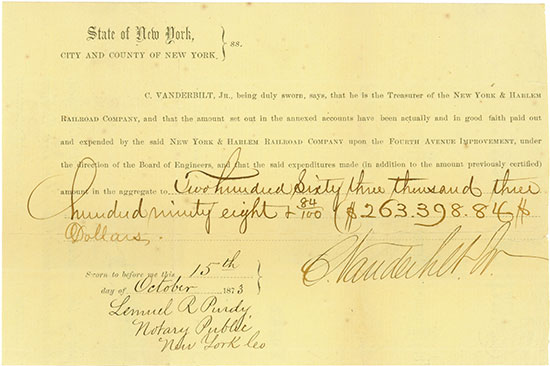 State of New York,
CITY AND COUNTY OF NEW YORK. } ss.
C. VANDERBILT, JR., being duly sworn, says, that he is the Treasurer of the NEW YORK & HARLEM
RAILROAD COMPANY, and that the amount set out in the annexed accounts have been actually and in good faith paid out
and expended by the said NEW YORK & HARLEM RAILROAD COMPANY upon the FOURTH AVENUE IMPROVEMENT, under
the direction of the Board of Engineers, and that the said expenditures made (in addition to the amount previously certified)
amount in the aggregate to Two hundred Sixty three thousand three
hundred ninety eight & 84/100 ($263.398.84)
Dollars.
C. Vanderbilt Jr
Sworn to before me this 15th
day of October 1873
Lemuel R Purdy
Notary Public
New York Co